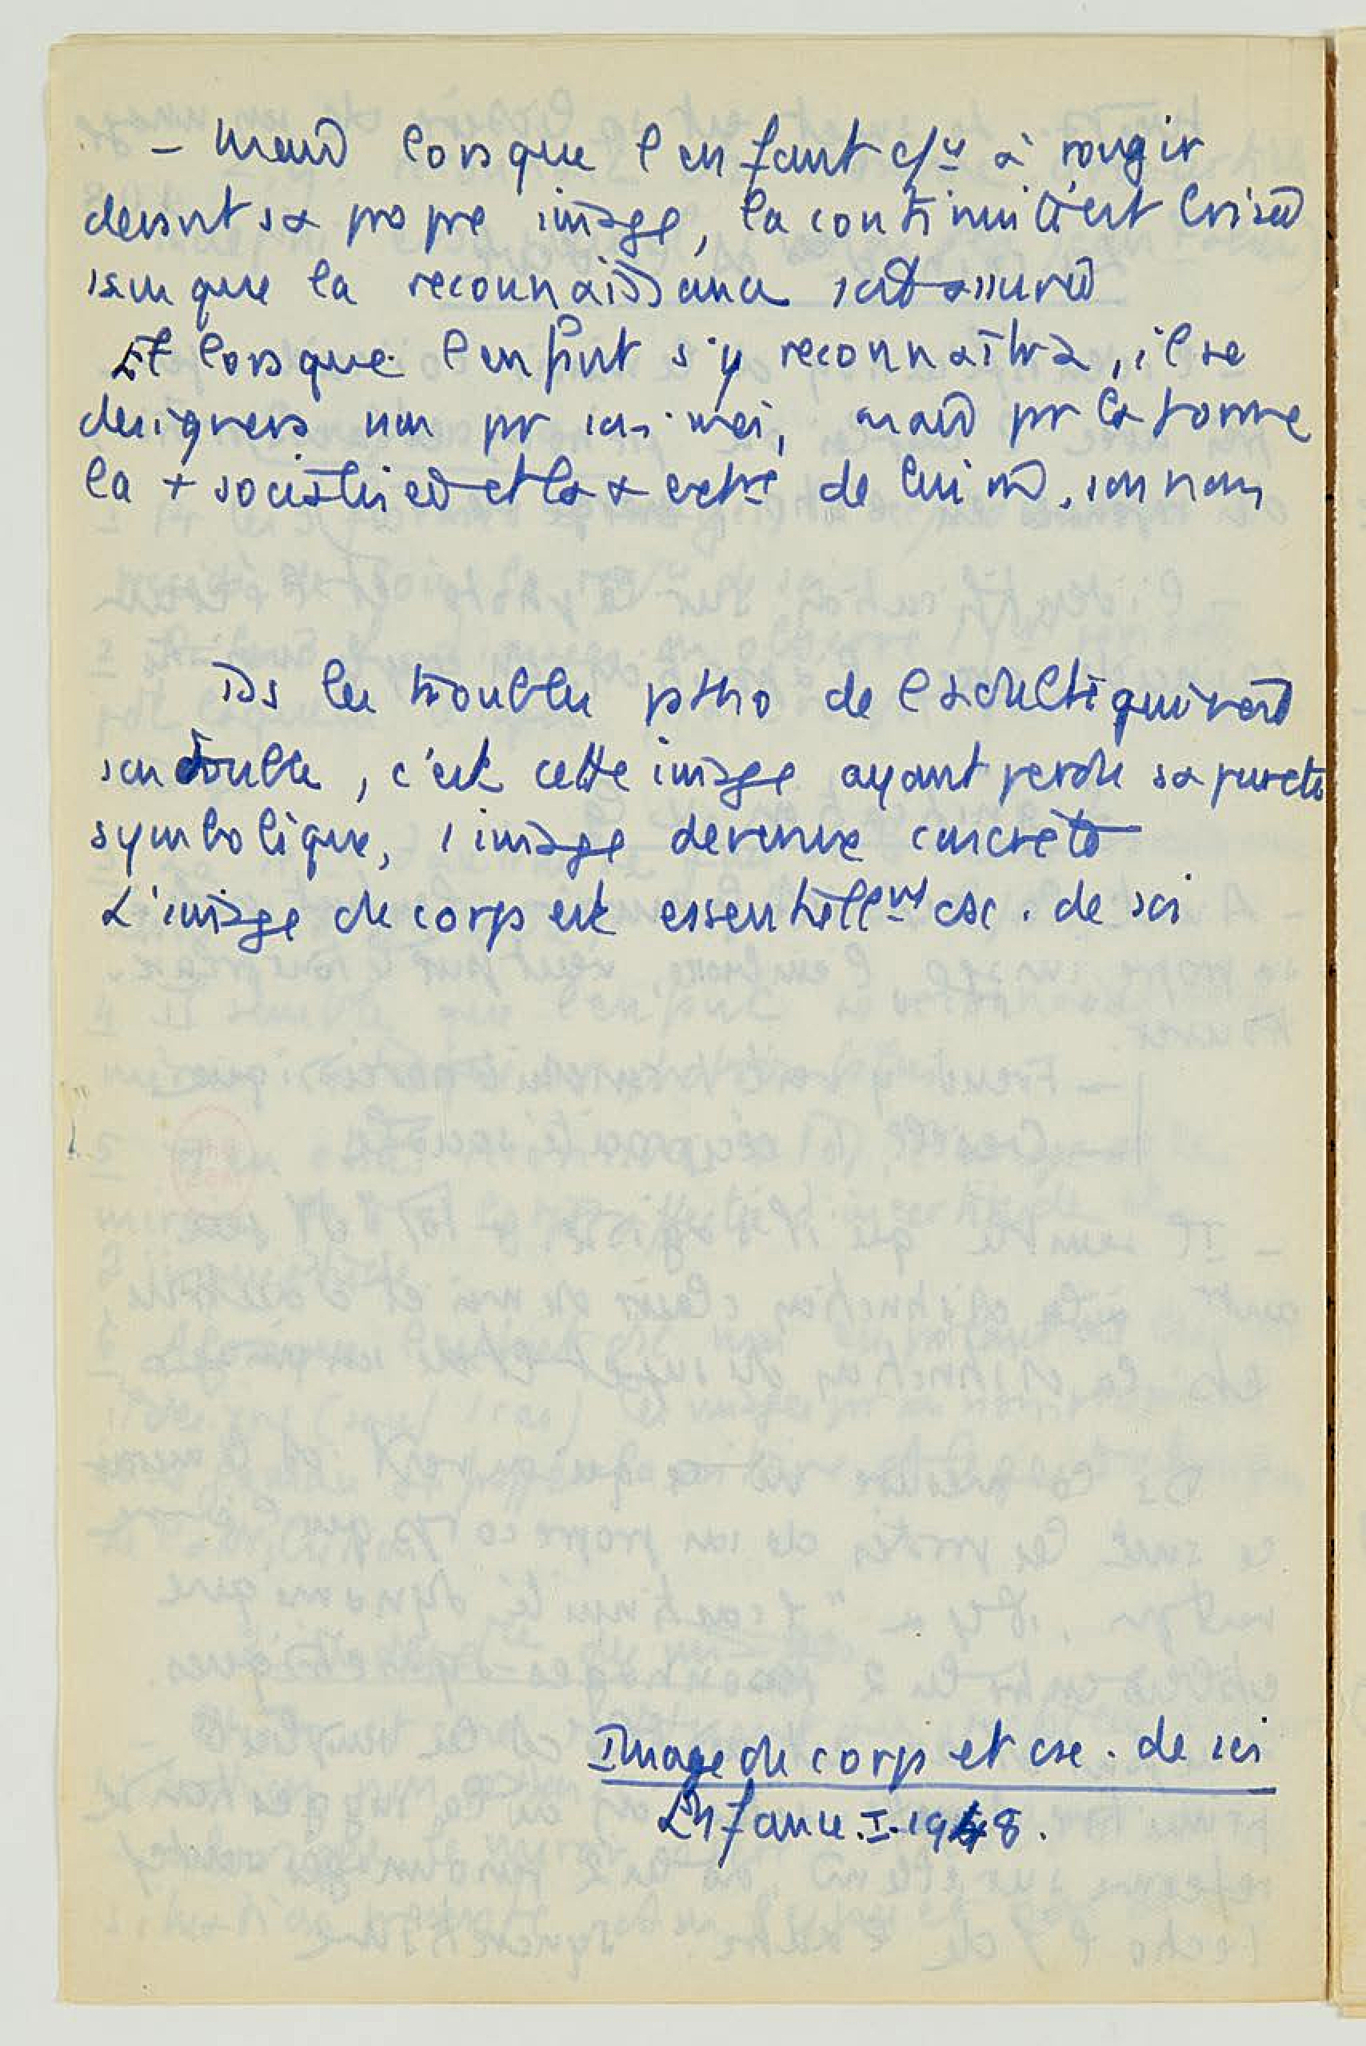 - mais lorsque l'enfant à rougir
devant sa propre image, la continuité est brisée
sans que la reconnaissance soit assurée
Et lorsque l'enfant s'y reconnaîtra, il se
designera non pr son moi, mais pr la forme
la + socialisée et la + extre de lui m, son nom
Ds les troubles patho de l'adulte qui voit
son double, c'est cette image ayant perdu sa pureté
symbolique, l'image devenue concrète
L'image du corps est essentiellmt csc. de soi
Image du corps et cse. de soi
Enfance. I. 1948.